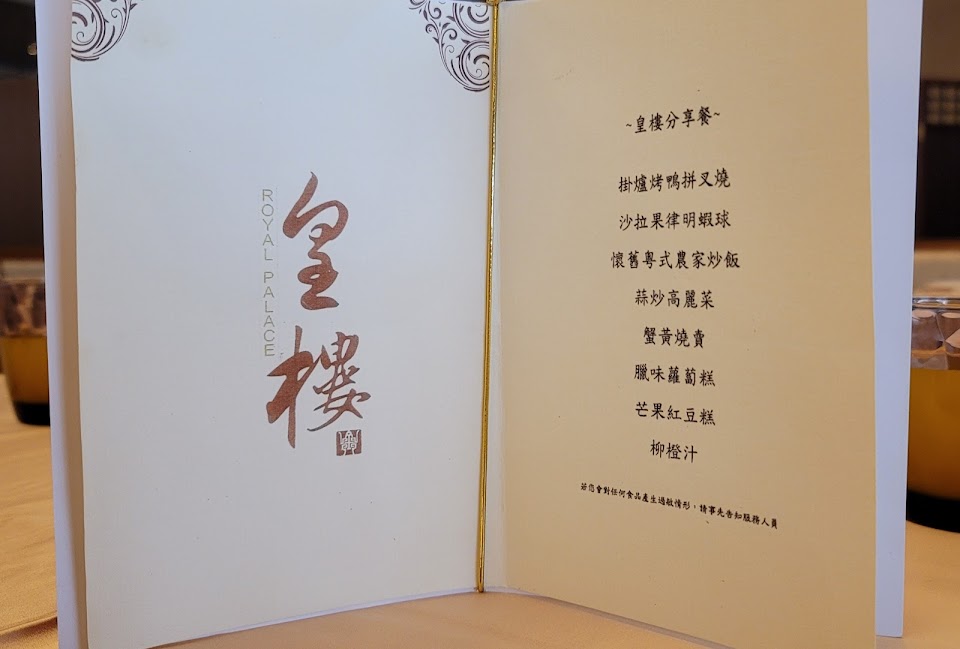 皇樓
ROYAL PALACE
~皇樓分享餐~
掛爐烤鴨拼叉燒
沙拉果律明蝦球
懷舊粵式農家炒飯
蒜炒高麗菜
蟹黃燒賣
臘味蘿蔔糕
芒果紅豆糕
柳橙汁
若您會對任何食品產生過敏情形，請事先告知服務人員